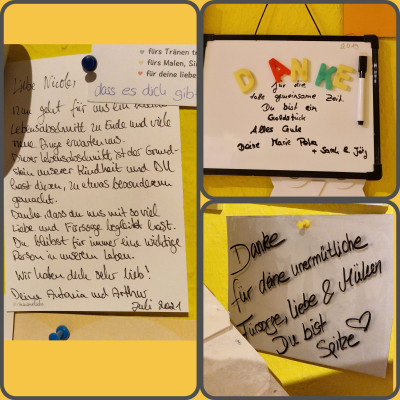 ♥ fürs Tränen tr
♥ fürs Malen, Si
♥ für deine liebe
dass es dich gib
Liebe Nicole,
Nun geht für uns ein
Lebensabschnitt zu Ende und viele
neue Dinge erwarten uns.
Dieser Lebensabschnitt ist der Grund-
stein unserer Kindheit und DU
hast diesen, zu etwas besonderem
gemacht.
Danke, dass du uns mit so viel
Liebe und Fürsorge begleitet hast.
Du bleibst für immer eine wichtige
Person in unserem Leben.
Wir haben dich sehr lieb!
Deine Antonia und Arthur
Juli 2021
DANKE
für die
tolle gemeinsame Zeit.
Du bist ein
Goldstück
Alles Gute
Deine Marie
+ Sarah & Jörg
Danke
für deine unermütliche
Fürsorge, Liebe & Mühen
Du bist
Spitze ♡